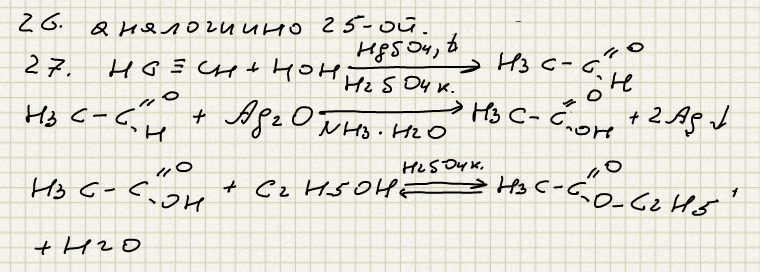 26. аналогично 25-ой.
27. HC≡CH + HOH HgSO4, t H2SO4 к. → H3C-C=O H
H3C-C=O H + Ag2O NH3·H2O → H3C-C=O OH + 2Ag↓
H3C-C=O OH + C2H5OH H2SO4 к. ⇌ H3C-C=O O-C2H5
+ H2O